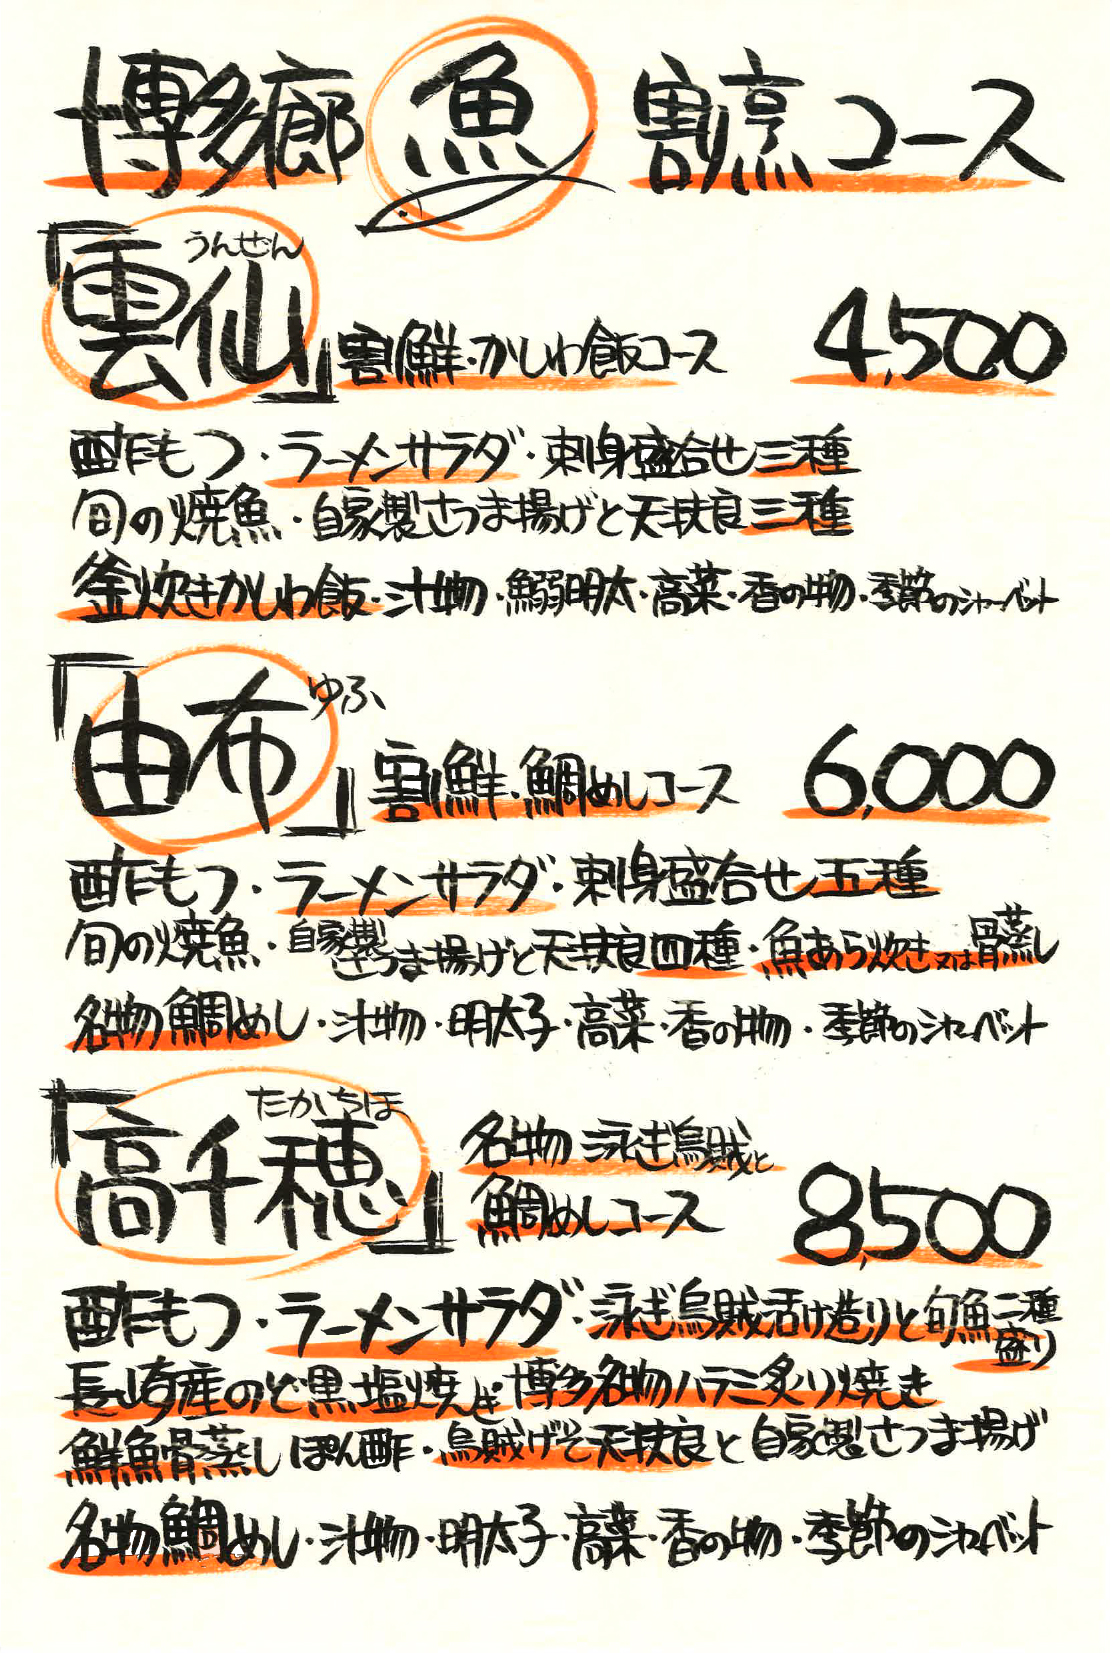 博多廊 魚 割烹コース
うんぜん
「雲仙」割鮮・かしわ飯コース 4,500
酢もつ・ラーメンサラダ・刺身盛合せ三種
旬の焼魚・自家製さつま揚げと天扶良三種
釜炊きかしわ飯・汁物・鰯明太・高菜・香の物・季節のシャーベット
ゆふ
「由布」割鮮・鯛めしコース 6,000
酢もつ・ラーメンサラダ・刺身盛合せ五種
旬の焼魚・自家製さつま揚げと天扶良四種・魚あら炊き又は骨蒸し
名物鯛めし・汁物・明太子・高菜・香の物・季節のシャーベット
たかちほ
「高千穂」名物 泳ぎ烏賊と
鯛めしコース 8,500
酢もつ・ラーメンサラダ・泳ぎ烏賊活け造りと旬魚二種盛り
長崎産のど黒塩焼き・博多名物ハラミ炙り焼き
鮮魚骨蒸し ぽん酢・烏賊げそ天扶良と自家製さつま揚げ
名物鯛めし・汁物・明太子・高菜・香の物・季節のシャーベット